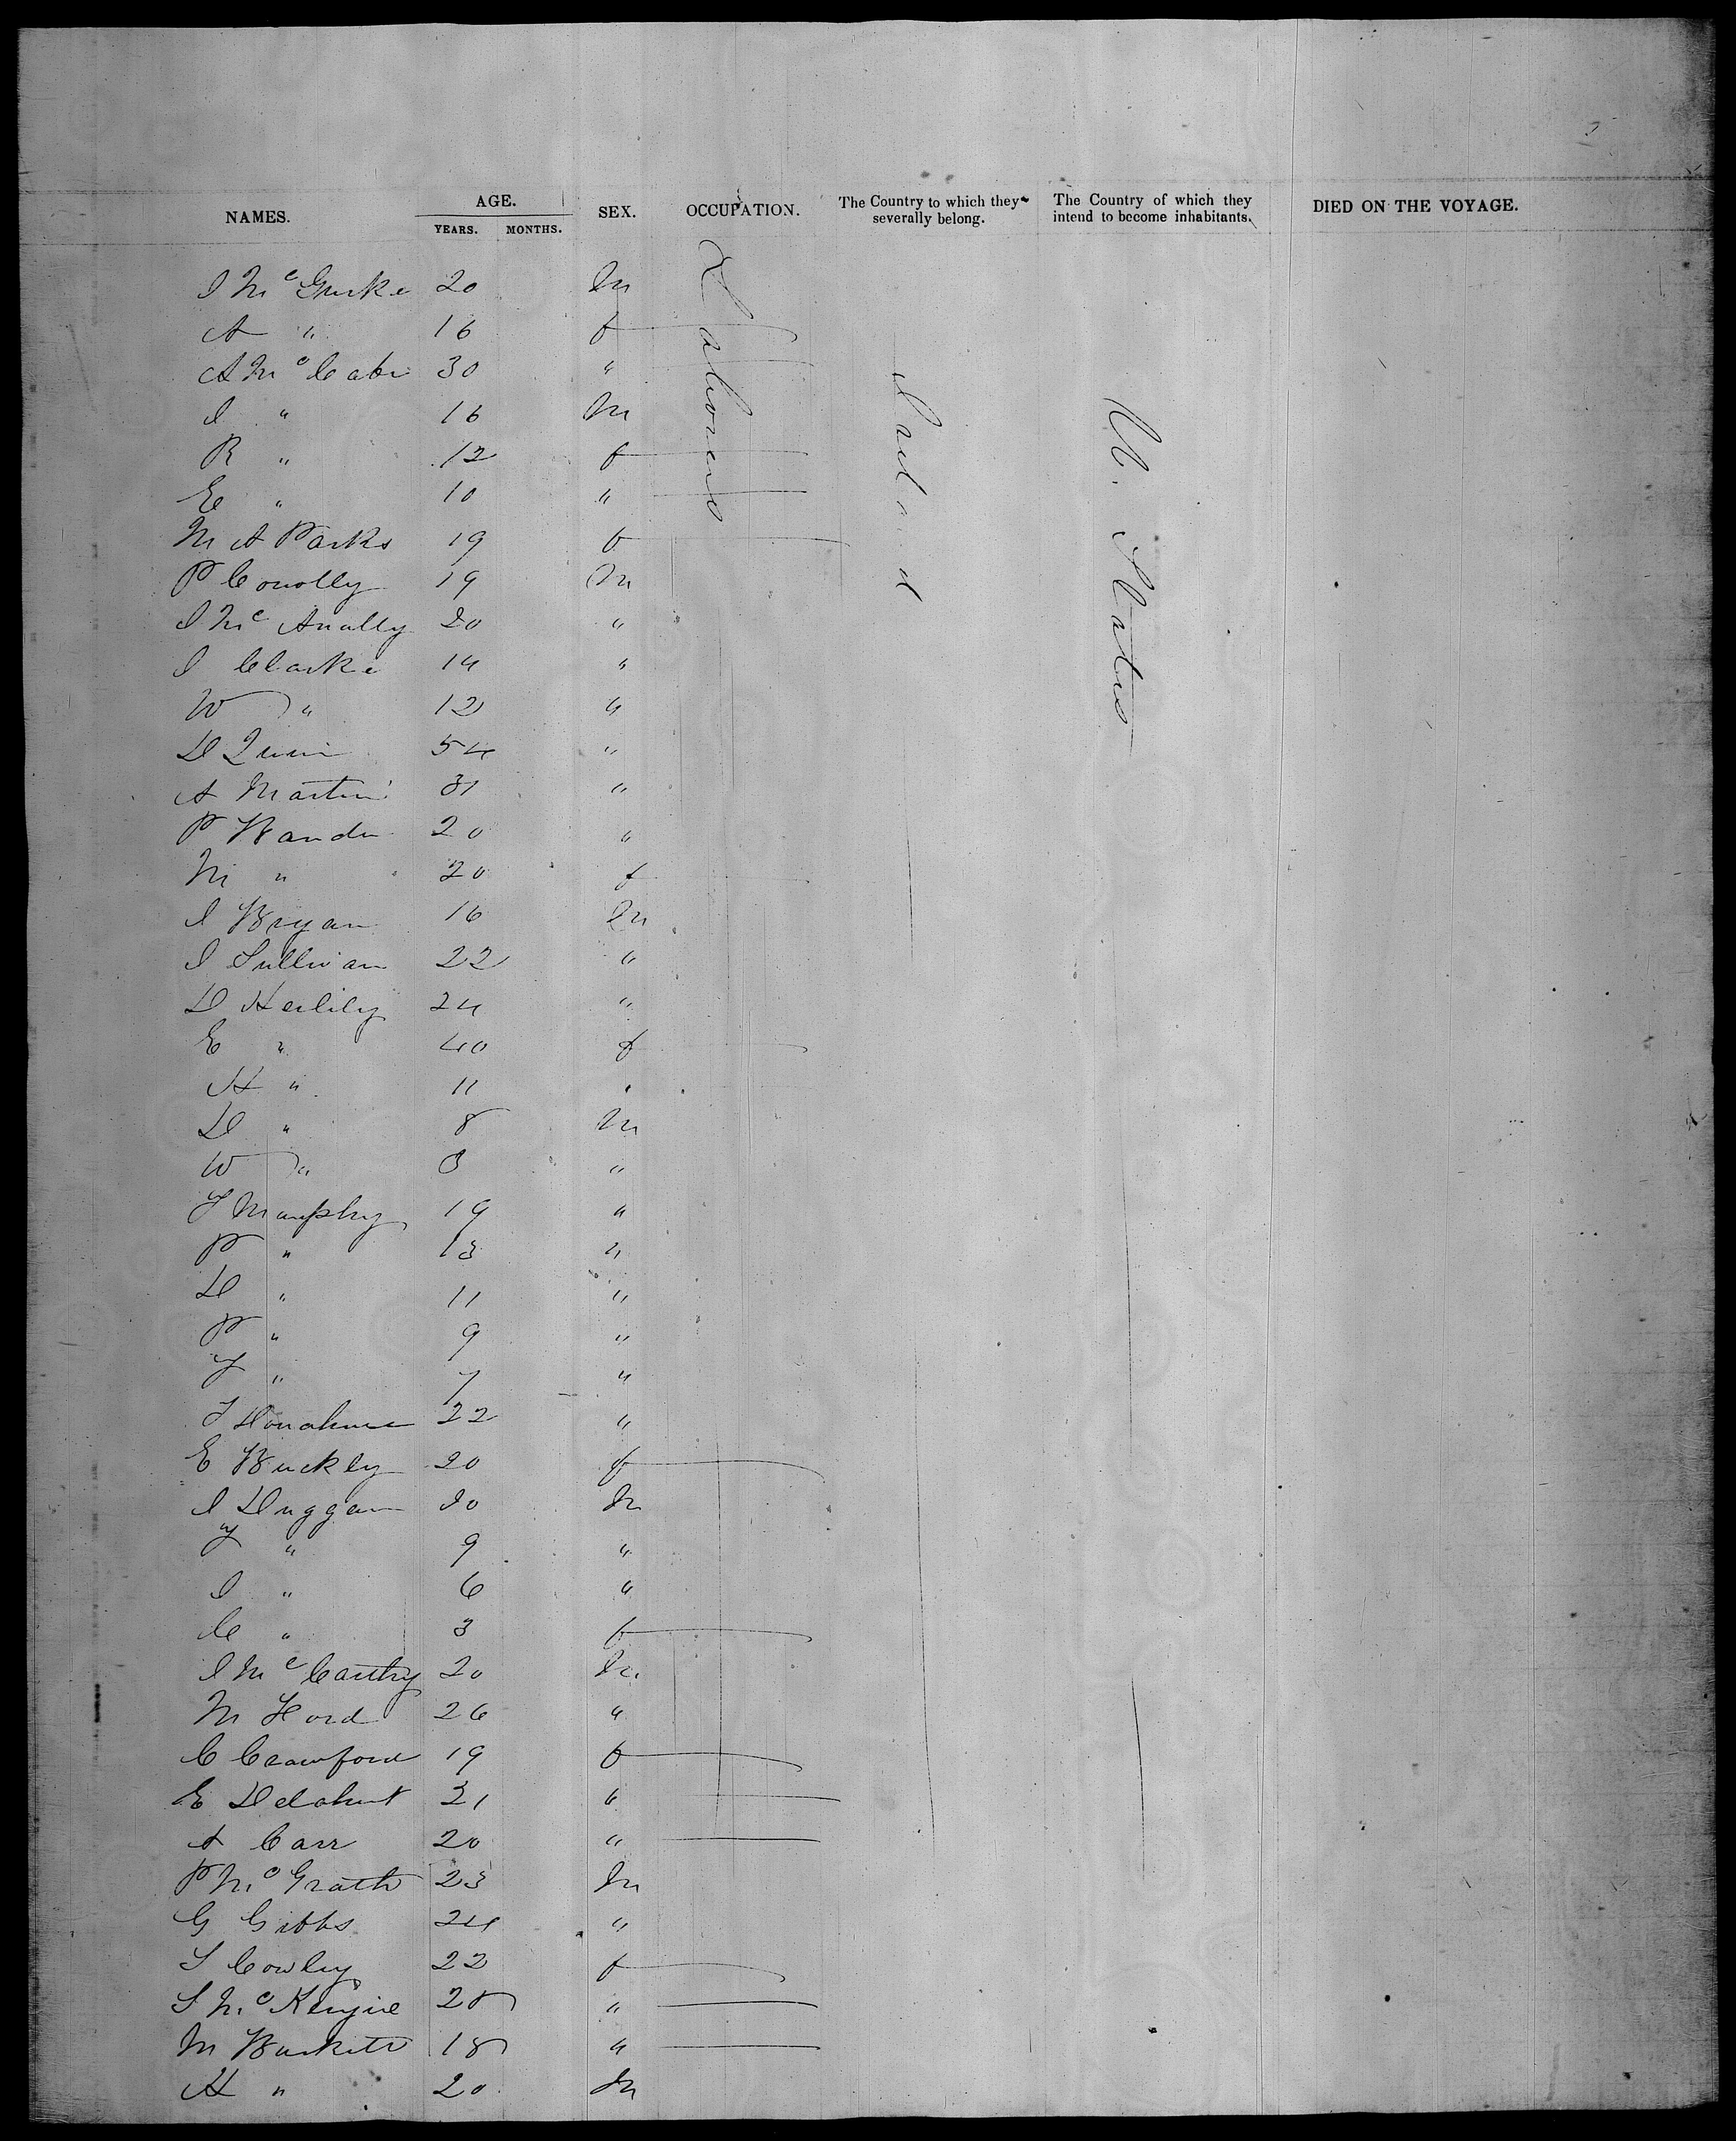 NAMES. AGE. YEARS. MONTHS. SEX. OCCUPATION. The Country to which they severally belong. The Country of which they intend to become inhabitants. DIED ON THE VOYAGE.
Laborers
Ireland
U. States
J McGurke 20 M
A " 16 f
A McCabe 30 "
J " 16 M
R " 12 f
E " 10 "
M A Parks 19 f
P Conolly 19 M
J McAnally 20 "
J Clarke 14 "
W " 12 "
D Quin 54 "
A Martin 31 "
P 20 "
M " 20 f
J Bryan 16 M
J Sullivan 22 "
D Herlihy 24 "
E " 40 f
H " 11 "
D " 8 M
W " 3 "
T Murphy 19 "
P " 13 "
D " 11 "
P " 9 "
J " 7 "
T Donahue 22 "
E Buckly 20 f
J Duggan 30 M
J " 9 "
J " 6 "
C " 3 f
J McCarthy 20 M
M Ford 26 "
C Crawford 19 f
E Delahunt 21 "
A Carr 20 "
P McGrath 23 M
G Gibbs 24 "
S Cowley 22 f
S McKenzie 28 "
M Burkett 18 "
H " 20 M